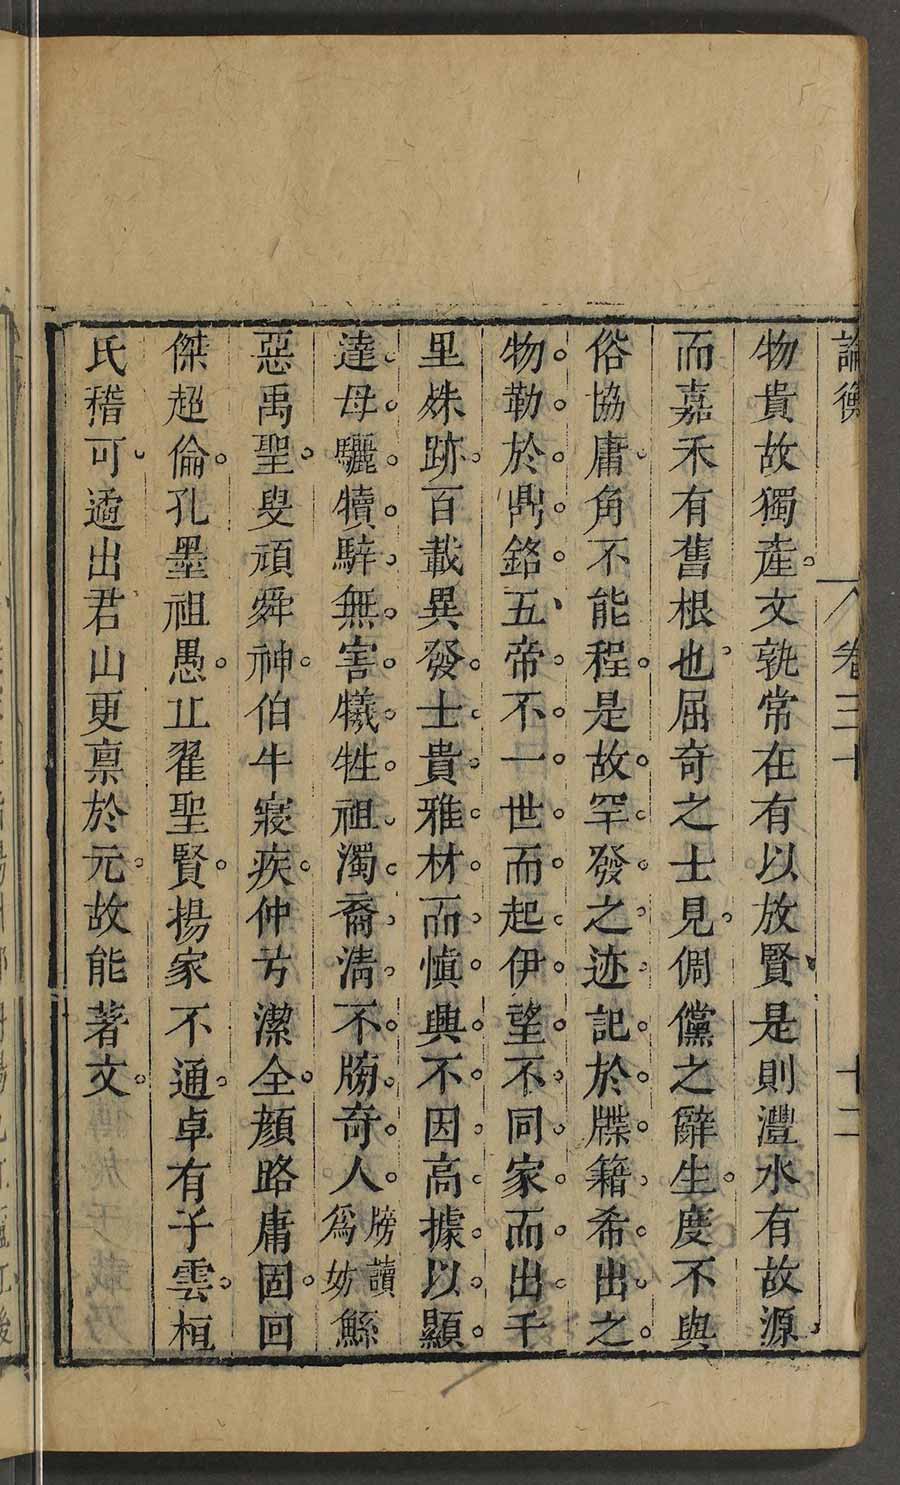 論衡 卷三十 十二
物貴故獨產文孰常在有以放賢是則灃水有故源
而嘉禾有舊根也屈奇之士見倜儻之辭生度不與
俗協庸角不能程是故罕發之迹記於牒籍希出之
物勒於鼎銘五帝不一世而起伊望不同家而出千
里殊跡百載異發士貴雅材而慎興不因高據以顯
達母驪犢騂無害犧牲祖濁裔清不牓奇人牓讀爲妨鯀
惡禹聖叟頑舜神伯牛寢疾仲弓潔全顏路庸固回
傑超倫孔墨祖愚丘翟聖賢揚家不通卓有子雲桓
氏稽可遹出君山更稟於元故能著文